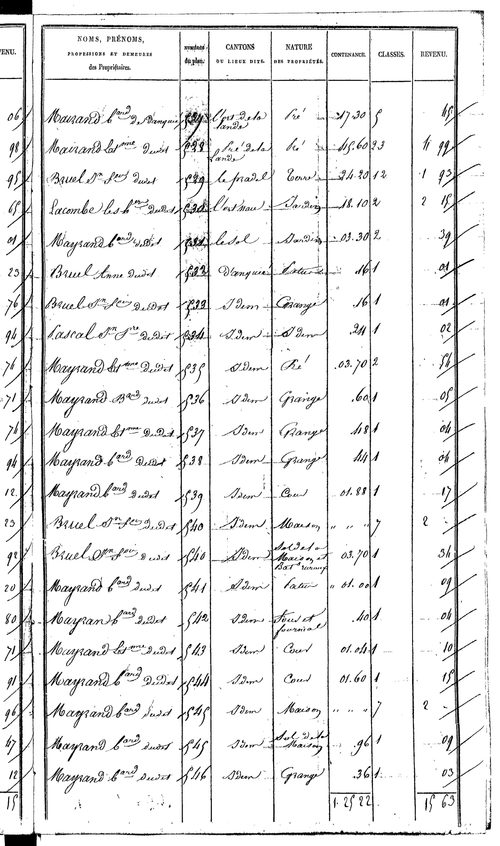 VENU.
NOMS, PRÉNOMS,
PROFESSIONS ET DEMEURES
des Propriétaires.
NUMÉROS
du plan.
CANTONS
OU LIEUX DITS.
NATURE
DES PROPRIÉTÉS.
CONTENANCE.
CLASSES.
REVENU.
06 Mairand bard de Danquié 527 l'ort de la lande Pré 17.30 5 65
98 Mairand dudit 528 Pré de la Lande Pré 45.60 23 4 99
95 Bruel dudit 529 le pradel Terre 24.20 12 1 93
65 Lacombe les dudit 530 l'ort Jardin 18.10 2 2 15
01 Mayrand bard dudit 531 le sol Jardin 03.30 2 39
23 Bruel Anne dudit 532 Danquié Patus 16 1 01
76 Bruel dudit 533 Idem Grange 16 1 01
94 Pascal dudit 534 Idem Idem 24 1 02
76 Mayrand dudit 535 Idem Pré 03.70 2 56
71 Mayrand Bard dudit 536 Idem Grange 60 1 05
74 Mayrand dudit 537 Idem Grange 48 1 04
94 Mayrand bard dudit 538 Idem Grange 44 1 04
12 Mayrand bard dudit 539 Idem Cour 01.88 1 17
23 Bruel dudit 540 Idem Maison " " " 7 2
92 Bruel dudit 540 Idem Sol de la Maison et Bat. rural 03.70 1 34
20 Mayrand bard dudit 541 Idem Patus 01.00 1 09
80 Mayran bard dudit 542 Idem Four et fournial 40 1 04
71 Mayrand dudit 543 Idem Cour 01.04 1 10
91 Mayrand bard dudit 544 Idem Cour 01.60 1 15
96 Mayrand bard dudit 545 Idem Maison " " " 7 2
47 Mayrand bard dudit 545 Idem Sol de la Maison 96 1 09
12 Mayrand bard dudit 546 Idem Grange 36 1 03
15 1.25 22 15 63